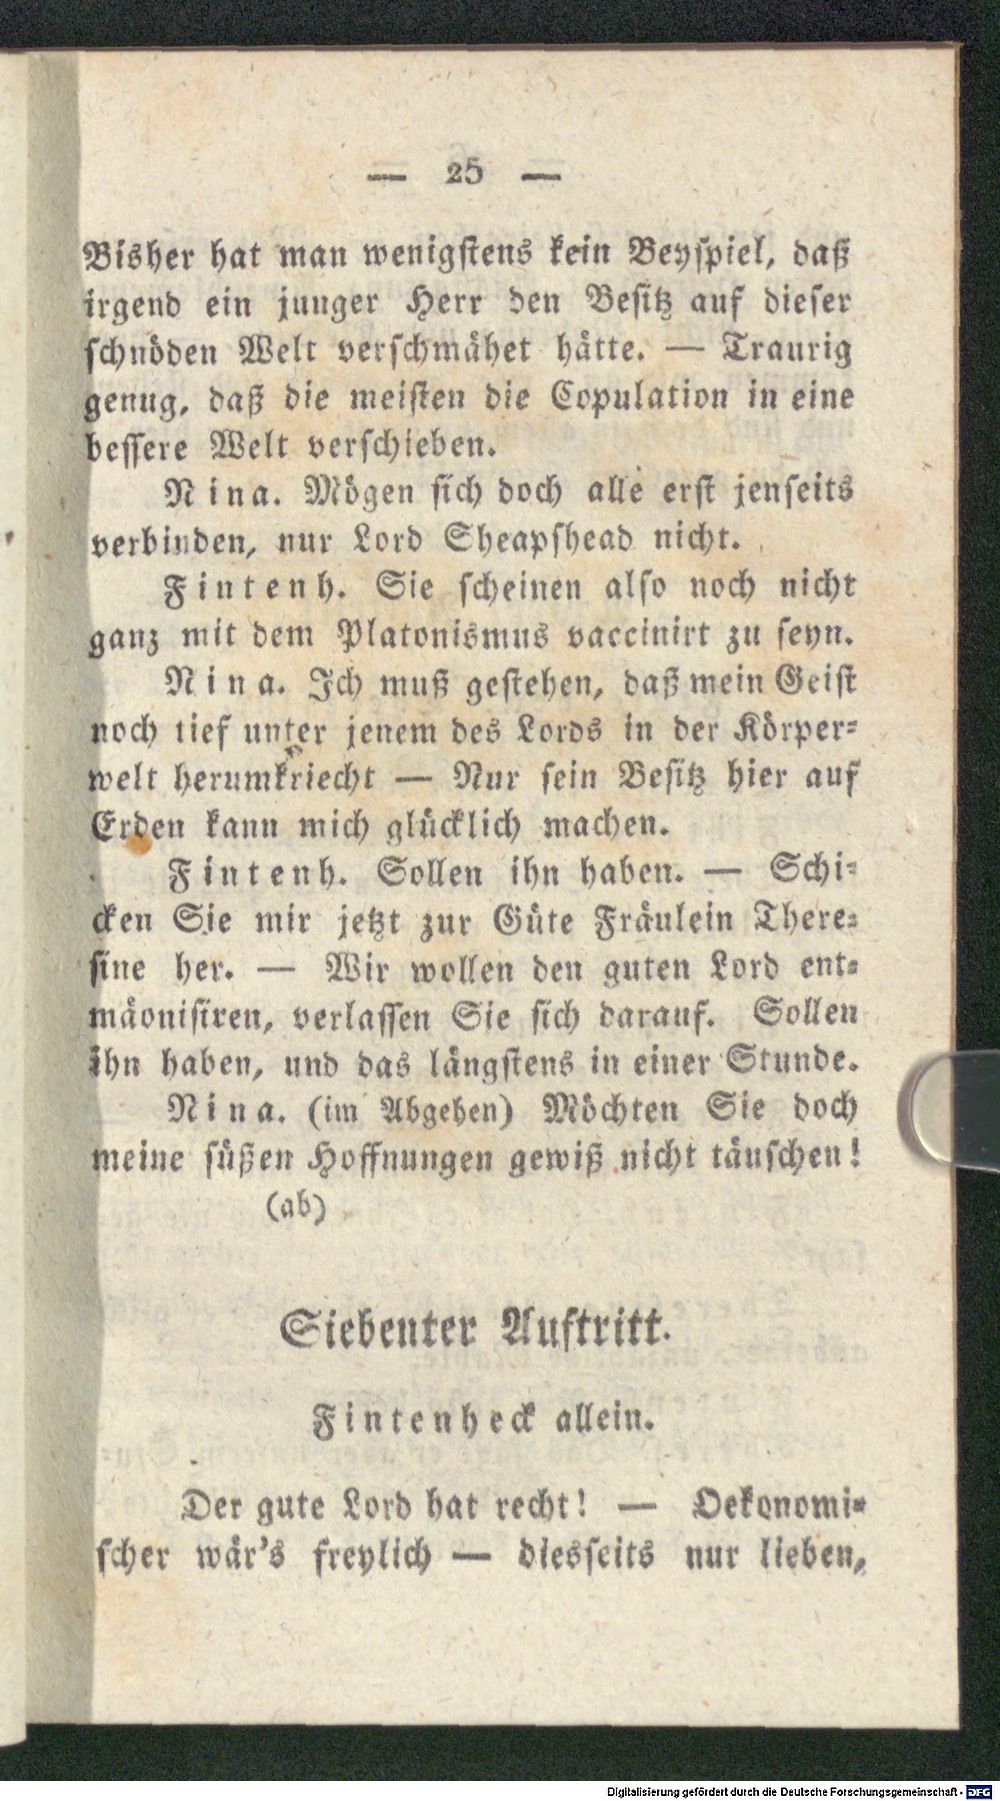 — 25 —
Bisher hat man wenigstens kein Beyspiel, daß
irgend ein junger Herr den Besitz auf dieser
schnöden Welt verschmähet hätte. — Traurig
genug, daß die meisten die Copulation in eine
bessere Welt verschieben.
Nina. Mögen sich doch alle erst jenseits
verbinden, nur Lord Sheapshead nicht.
Fintenh. Sie scheinen also noch nicht
ganz mit dem Platonismus vaccinirt zu seyn.
Nina. Ich muß gestehen, daß mein Geist
noch tief unter jenem des Lords in der Körper-
welt herumkriecht — Nur sein Besitz hier auf
Erden kann mich glücklich machen.
Fintenh. Sollen ihn haben. — Schi-
cken Sie mir jetzt zur Güte Fräulein There-
sine her. — Wir wollen den guten Lord ent-
mäonisiren, verlassen Sie sich darauf. Sollen
ihn haben, und das längstens in einer Stunde.
Nina. (im Abgehen) Möchten Sie doch
meine süßen Hoffnungen gewiß nicht täuschen!
(ab)
Siebenter Auftritt.
Fintenheck allein.
Der gute Lord hat recht! — Oekonomi-
scher wär's freylich — diesseits nur lieben,
Digitalisierung gefördert durch die Deutsche Forschungsgemeinschaft - DFG